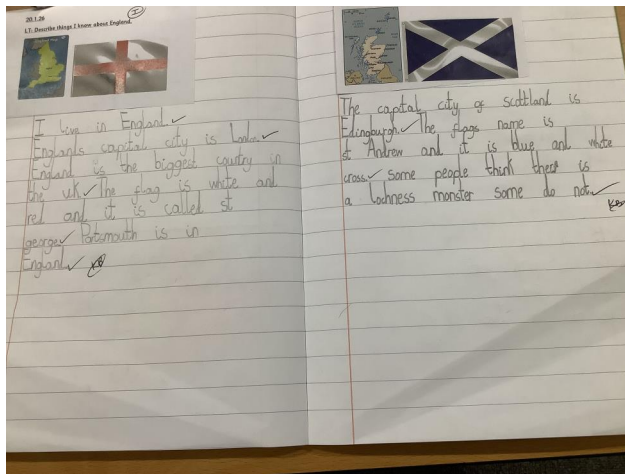 20.1.26
I
L.T: Describe things I know about England.
I live in England.
Englands capital city is London.
England is the biggest country in
the uk. The flag is white and
red and it is called st
george. Portsmouth is in
England.
The capital city of scottland is
Edingburgh. The flags name is
st Andrew and it is blue and white
cross. Some people think there is
a lochness monster some do not.